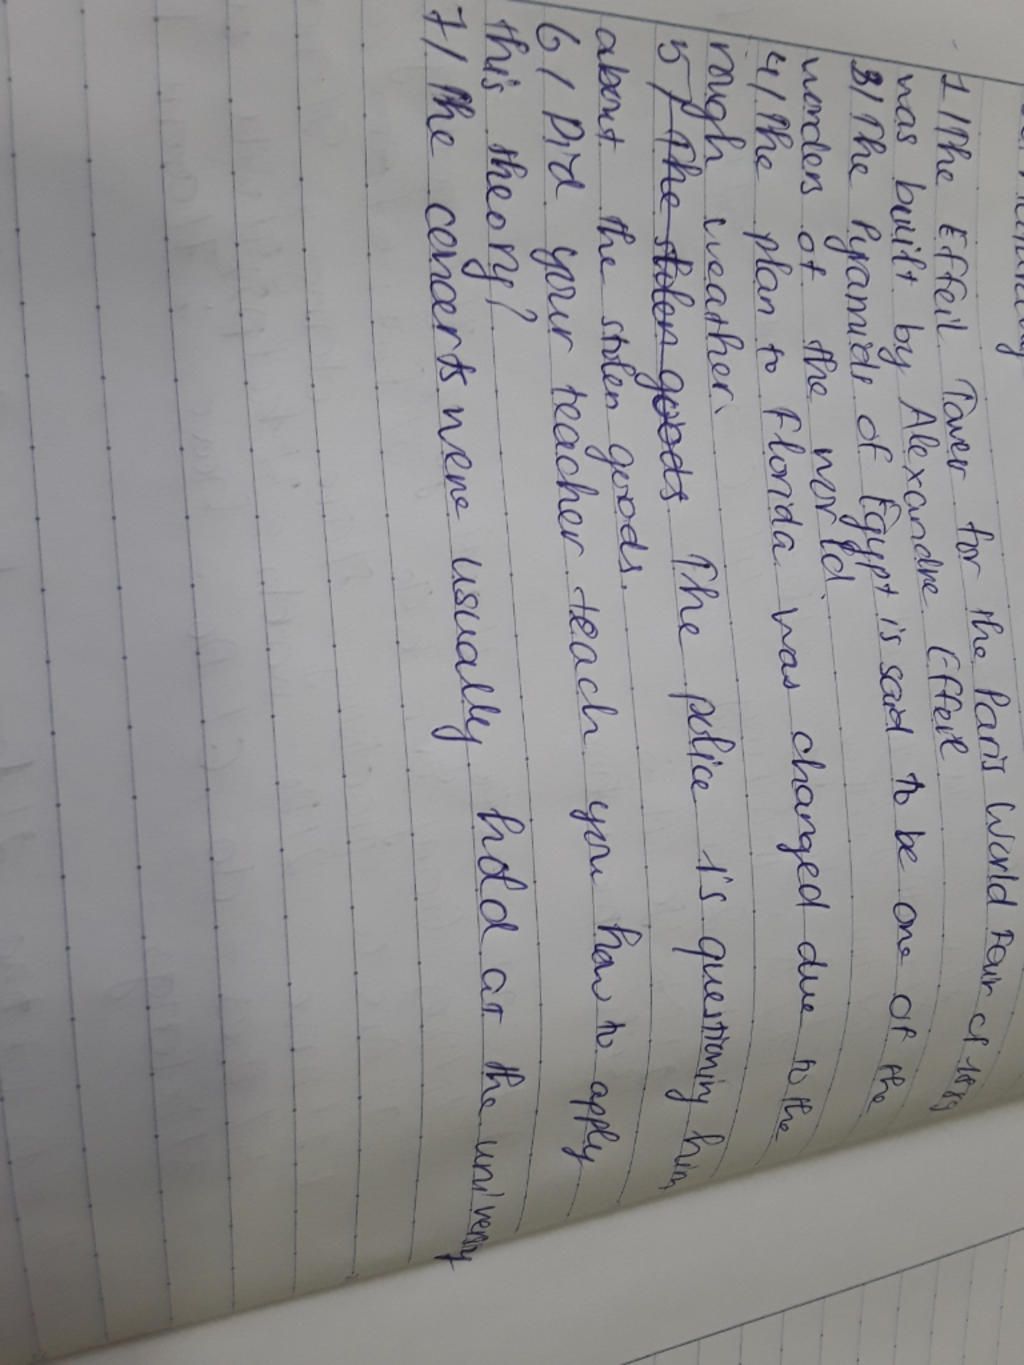 1/ The Effeil Tower for the Paris World Fair of 1889
was built by Alexandre Effeil
3/ The Pyramids of Egypt is said to be one of the
wonders of the world
4/ The plan to Florida was changed due to the
rough weather.
5/ The stolen goods The police is questioning him
about the stolen goods.
6/ Did your teacher teach you how to apply
this theory?
7/ The concerts were usually hold at the university